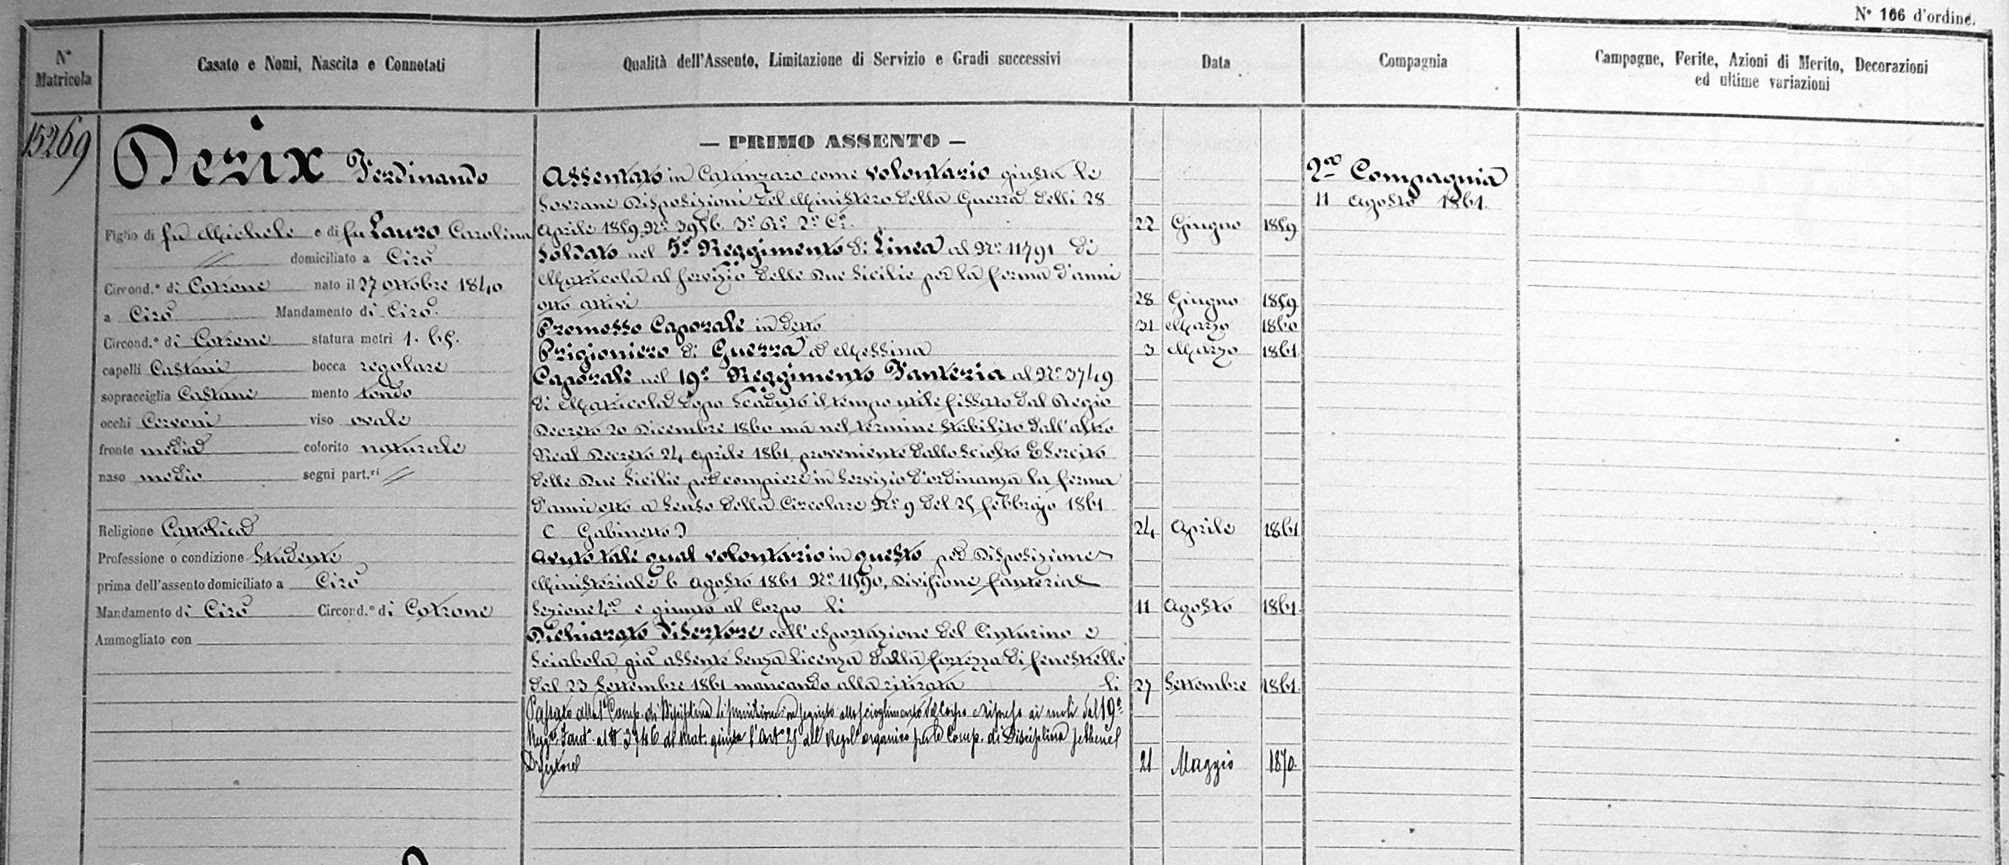 N° 166 d'ordine.
N° Matricola
Casato e Nomi, Nascita e Connotati
Qualità dell'Assento, Limitazione di Servizio e Gradi successivi
Data
Compagnia
Campagne, Ferite, Azioni di Merito, Decorazioni
ed ultime variazioni
15269
Derix Ferdinando
Figlio di fu Michele e di fu Lauro Carolina
// domiciliato a Cirò
Circond.° di Cotrone nato il 27 ottobre 1840
a Cirò Mandamento di Cirò.
Circond.° di Cotrone statura metri 1. 65.
capelli Castani bocca regolare
sopracciglia Castane mento tondo
occhi Cervoni viso ovale
fronte media colorito naturale
naso medio segni part.ri //
Religione Cattolica
Professione o condizione Studente
prima dell'assento domiciliato a Cirò
Mandamento di Cirò Circond.° di Cotrone
Ammogliato con
— PRIMO ASSENTO —
Assentato in Catanzaro come volontario giusta le
Sovrane Disposizioni del Ministero della Guerra delli 28
Aprile 1859. N° 3956 3° R° 2° C° 22 Giugno 1859
Soldato nel 5° Reggimento di Linea al N° 11791 di
Matricola al servizio delle Due Sicilie per la ferma d'anni
otto attivi 28 Giugno 1859
Promosso Caporale in detto 31 Marzo 1860
Prigioniero di Guerra a Messina 3 Marzo 1861
Caporale nel 19° Reggimento Fanteria al N° 3749
di Matricola dopo scaduto il tempo utile fissato dal Regio
Decreto 20 Dicembre 1860 ma nel termine stabilito dall'altro
Real Decreto 24 Aprile 1861, proveniente dallo sciolto Esercito
delle Due Sicilie per compiere in servizio d'ordinanza la ferma
d'anni otto a senso della Circolare N° 9 del 25 febbrajo 1861
( Gabinetto ) 24 Aprile 1861
Avuto tale qual volontario in questo per Disposizione
Ministeriale 6 Agosto 1861 N° 11590, Divisione fanteria
Sezione 4a e giunto al Corpo li 11 Agosto 1861.
Dichiarato disertore coll'esportazione del Cinturino e
Sciabola, già assente senza licenza dalla fortezza di fenestrelle
dal 23 Settembre 1861 mancando alla ritirata li 27 Settembre 1861.
Passato alla 1a Comp. di Disciplina di punizione in seguito allo scioglimento del Corpo e ripreso ai ruoli dal 19°
Regg° Fant. al N° 3746 di Mat. giusta l'Art° 25 del Regol° organico per le Comp. di Disciplina
Disertore 21 Maggio 1870.
2a Compagnia
11 Agosto 1861.